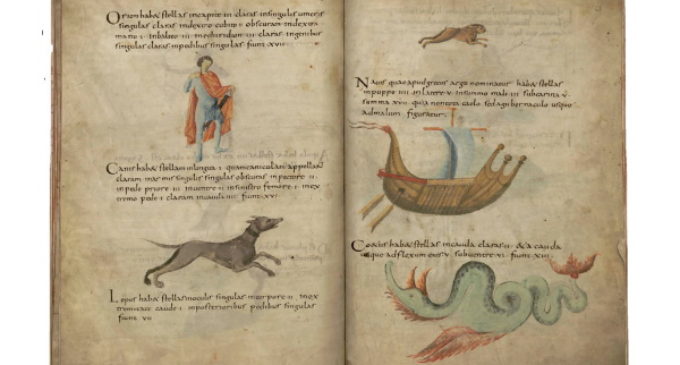 Orion habet stellas in capite iii claras in singulis umeris
singulas claras in dextro cubito i obscuram in dextra
manu i in balteo iii in
singulas claras in pedibus singulas fiunt xvii
Canis habet stellam in lingua i quam canicula appellant
claram in singulis singulas obscuras in pectore ii
in pede priore iii in ventre ii in sinistro femore i in ex
tremo pede i claram in cauda iiii fiunt xvi
Lepus habet stellas in oculis singulas in corpore ii in ex
trema caude i in posterioribus pedibus singulas
fiunt vii
Navis quae apud grecos argo nominatur habet stellas
in puppe iiii in latere v in summo malo iii sub carina v
summa xvii quia non tota caelo sed a gubernaculo usque
ad malum figuratur
Coetus habet stellas in cauda claras ii de a cauda
usque ad flexum eius v sub ventre vi fiunt xiii